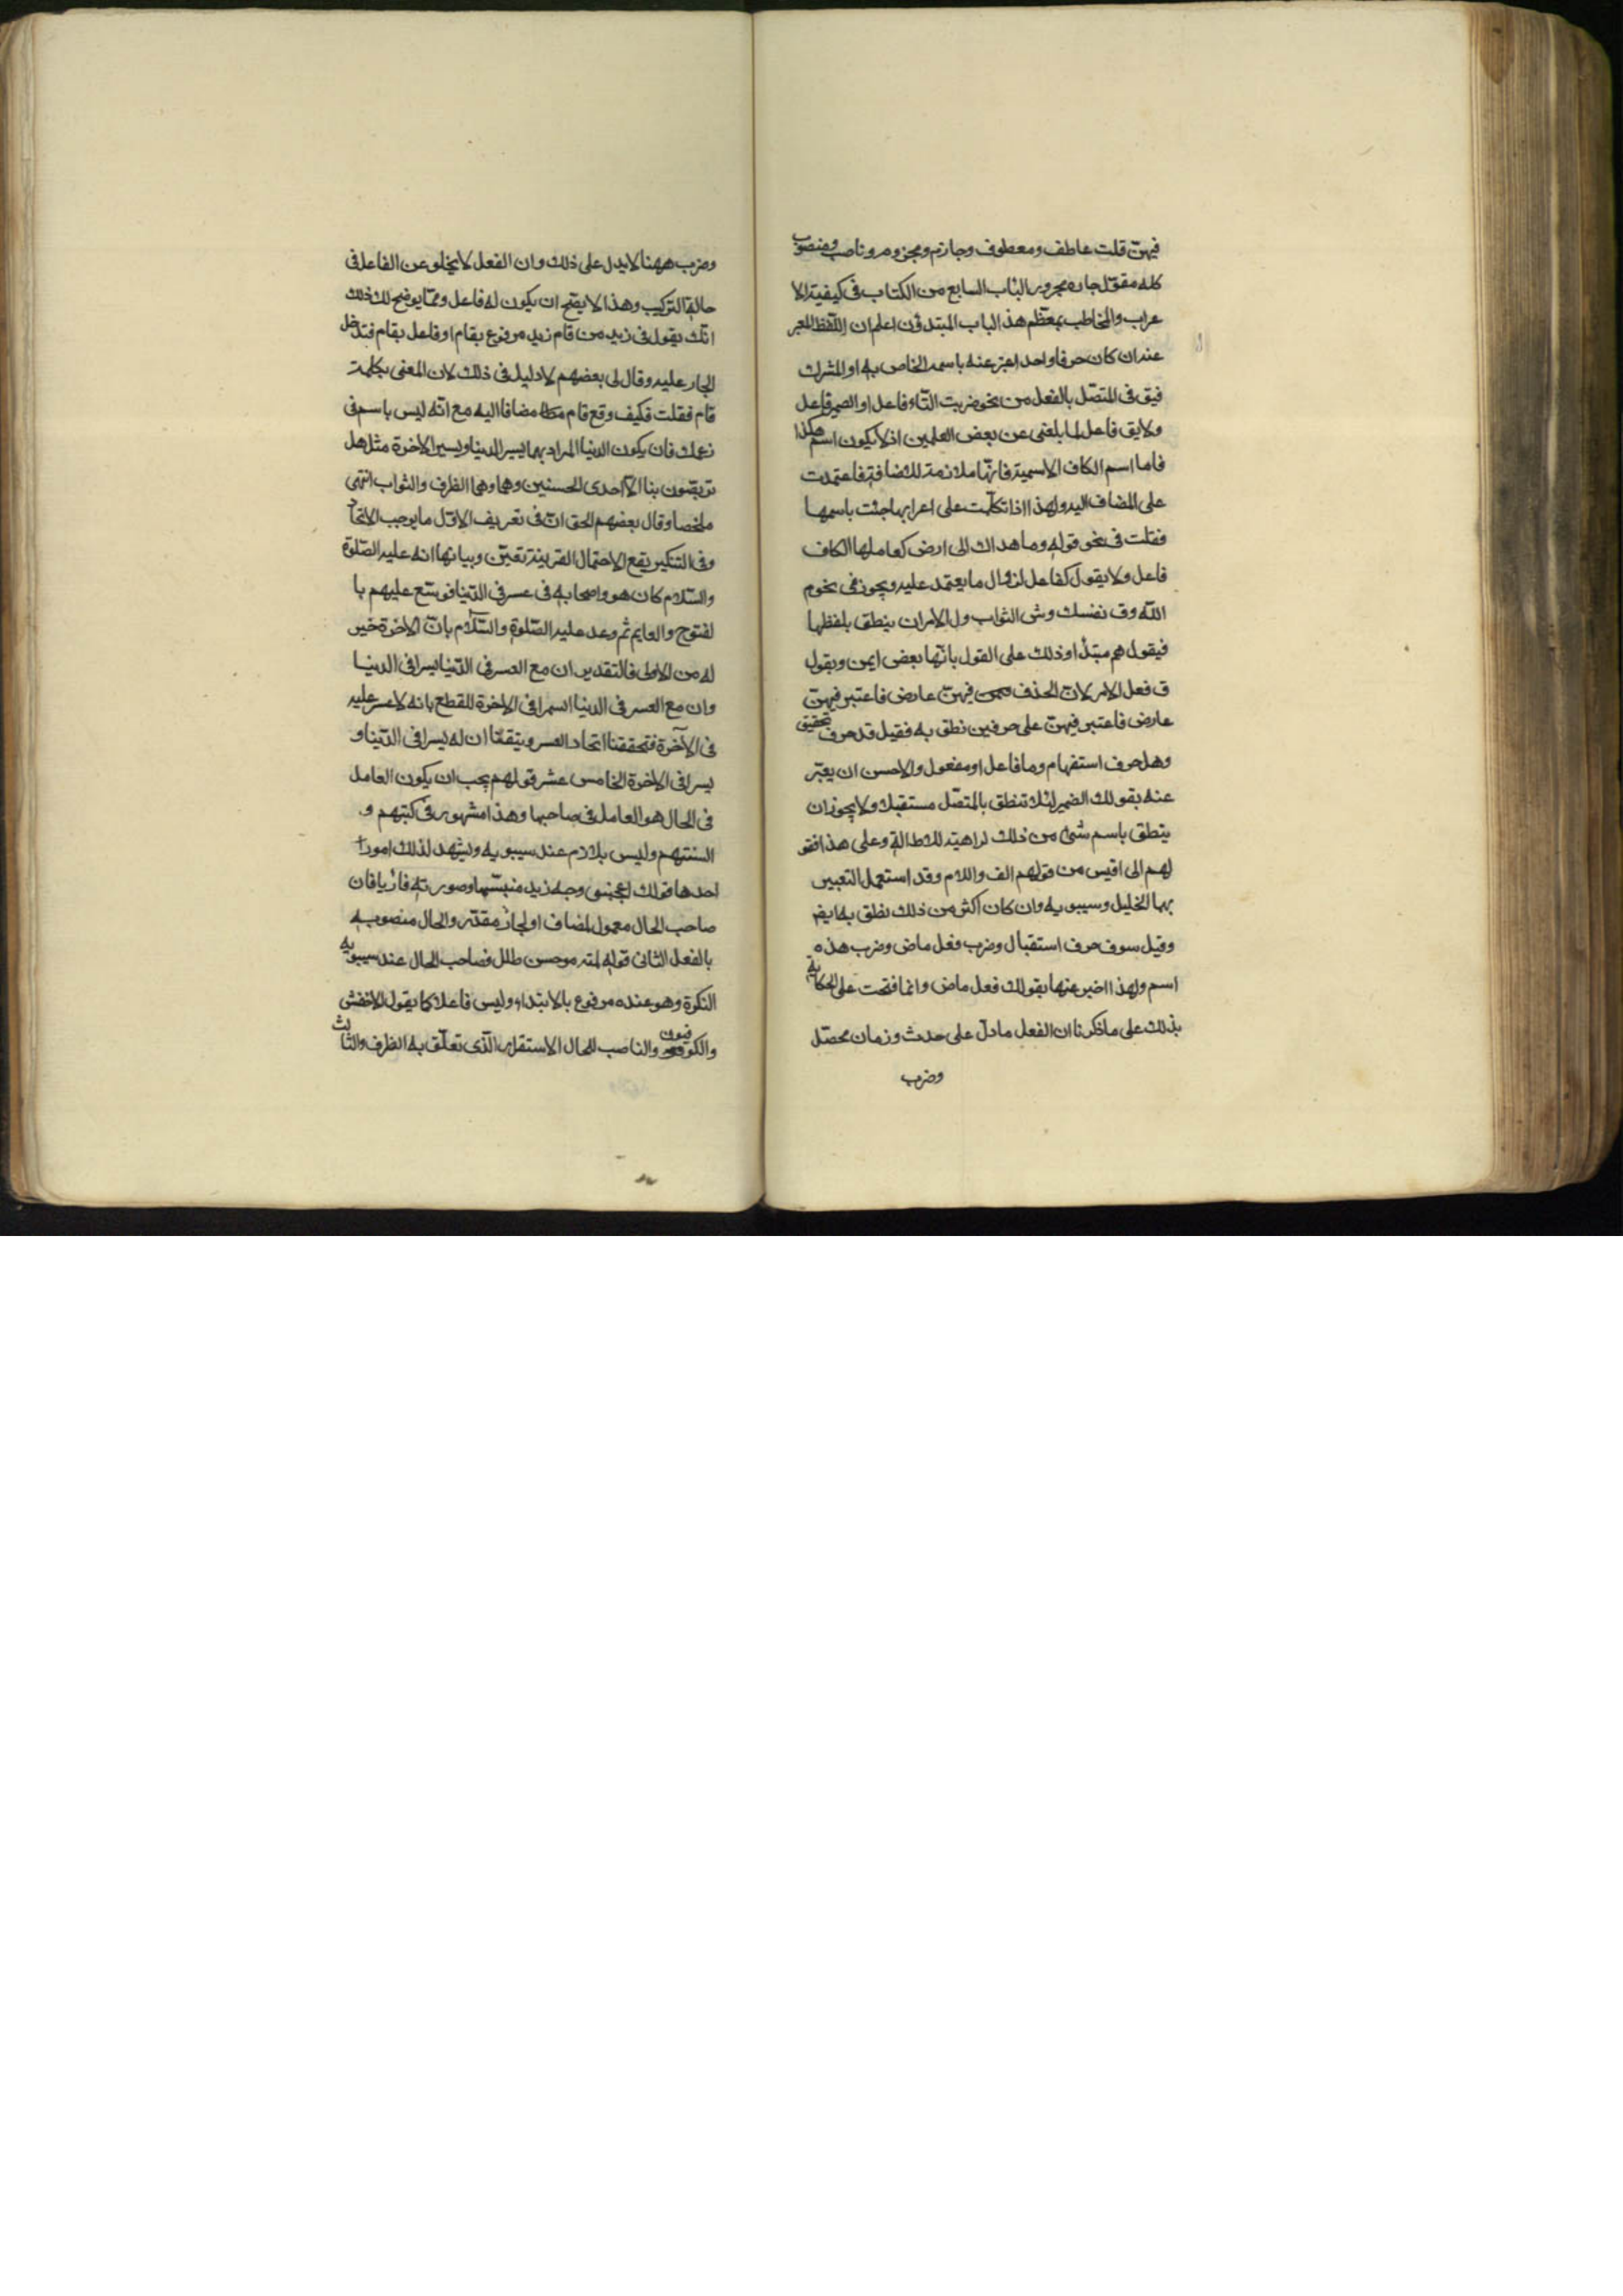 فيهن قلت عاطف ومعطوف وجازم ومجزوم وناصب ومنصوب
كله مقول جار ومجرور الباب السابع من الكتاب فى كيفية الا
عراب والمخاطب بمعظم هذا الباب المبتدؤن اعلم ان اللفظ المعبر
عنه ان كان حرفا واحدا عبر عنه باسمه الخاص به او المشرك
فيق فى المتصل بالفعل من نحو ضربت التاء فاعل او الضمير فاعل
ولا يق فاعل لما بلغنى عن بعض العلمين اذ لا يكون اسم هكذا
فاما اسم الكاف الاسمية فانها ملازمة للاضافة فاعتمدت
على المضاف اليه ولهذا اذا تكلمت على اعرابها جئت باسمها
فقلت فى نحو قوله وما هداك الى ارض كعاملها الكاف
فاعل ولا يقول كفاعل لزوال ما يعتمد عليه ويجوز فى نحو م
الله وق نفسك وش الثواب ول الامر ان ينطق بلفظها
فيقول م مبتدأ وذلك على القول بانها بعض ايمن ويقول
ق فعل الامر لان الحذف فيهن عارض فاعتبر فيهن
عارض فاعتبر فيهن على حرفين نطق به فقيل قد حرف تحقيق
وهل حرف استفهام وما فاعل او مفعول والاحسن ان يعبر
عنه بقولك الضمير لئلا تنطق بالمتصل مستقبلا ولا يجوز ان
ينطق باسم شئ من ذلك كراهية للاطالة وعلى هذا فقو
لهم الى اقيس من قولهم الف واللام وقد استعمل التعبير
بهما الخليل وسيبويه وان كان اكثر من ذلك نطق به ايض
وقيل سوف حرف استقبال وضرب فعل ماض وضرب هذه
اسم ولهذا اخبر عنها بقولك فعل ماض وانما فتحت على الحكاية
بذلك على ما ذكرنا ان الفعل ما دل على حدث وزمان محصل
وضرب
وضرب ههنا لا يدل على ذلك وان الفعل لا يخلو عن الفاعل فى
حالة التركيب وهذا لا يصح ان يكون له فاعل ومما يوضح لك ذلك
انك يقول فى زيد من قام زيد مرفوع بقام او فاعل بقام فتدخل
الجار عليه وقال لى بعضهم لا دليل فى ذلك لان المعنى بكلمة
قام فقلت فكيف وقع قام مضافا اليه مع انه ليس باسم فى
زعمك فان يكون الدنيا المراد بهما يسير الدنيا ويسير الاخرة مثل هل
تربصون بنا الا احدى الحسنيين وهما وهما الظرف والثواب انتهى
ملخصا وقال بعضهم الحق ان فى تعريف الاول ما يوجب الاتحاد
وفى التنكير يقع الاحتمال القرينة تعين وبيانها انه عليه الصلوة
والسلام كان هو واصحابه فى عسر فى الدنيا فوسع عليهم با
لفتوح والعايم ثم وعد عليه الصلوة والسلام بان الاخرة خير
له من الاولى فالتقدير ان مع العسر فى الدنيا يسرا فى الدنيا
وان مع العسر فى الدنيا اسمرا فى الاخرة للقطع بانه لا عسر عليه
فى الآخرة فتحققنا اتحاد العسر ويتقنا ان له يسرا فى الدنيا و
يسرا فى الاخرة الخامس عشر قولهم يجب ان يكون العامل
فى الحال هو العامل فى صاحبها وهذا مشهور فى كتبهم و
السنتهم وليس بلازم عند سيبويه ويشهد لذلك امور
احدها قولك اعجبنى وجه زيد متبسما وصورته قارئا فان
صاحب الحال معمول لمضاف او لجار مقدر والحال منصوبه
بالفعل الثانى قوله لمية موحس طلل فصاحب الحال عند سيبويه
النكرة وهو عنده مرفوع بالابتداء وليس فاعلا كما يقول الاخفش
والكوفيون والناصب للحال الاستقرار الذى تعلق به الظرف والثالث